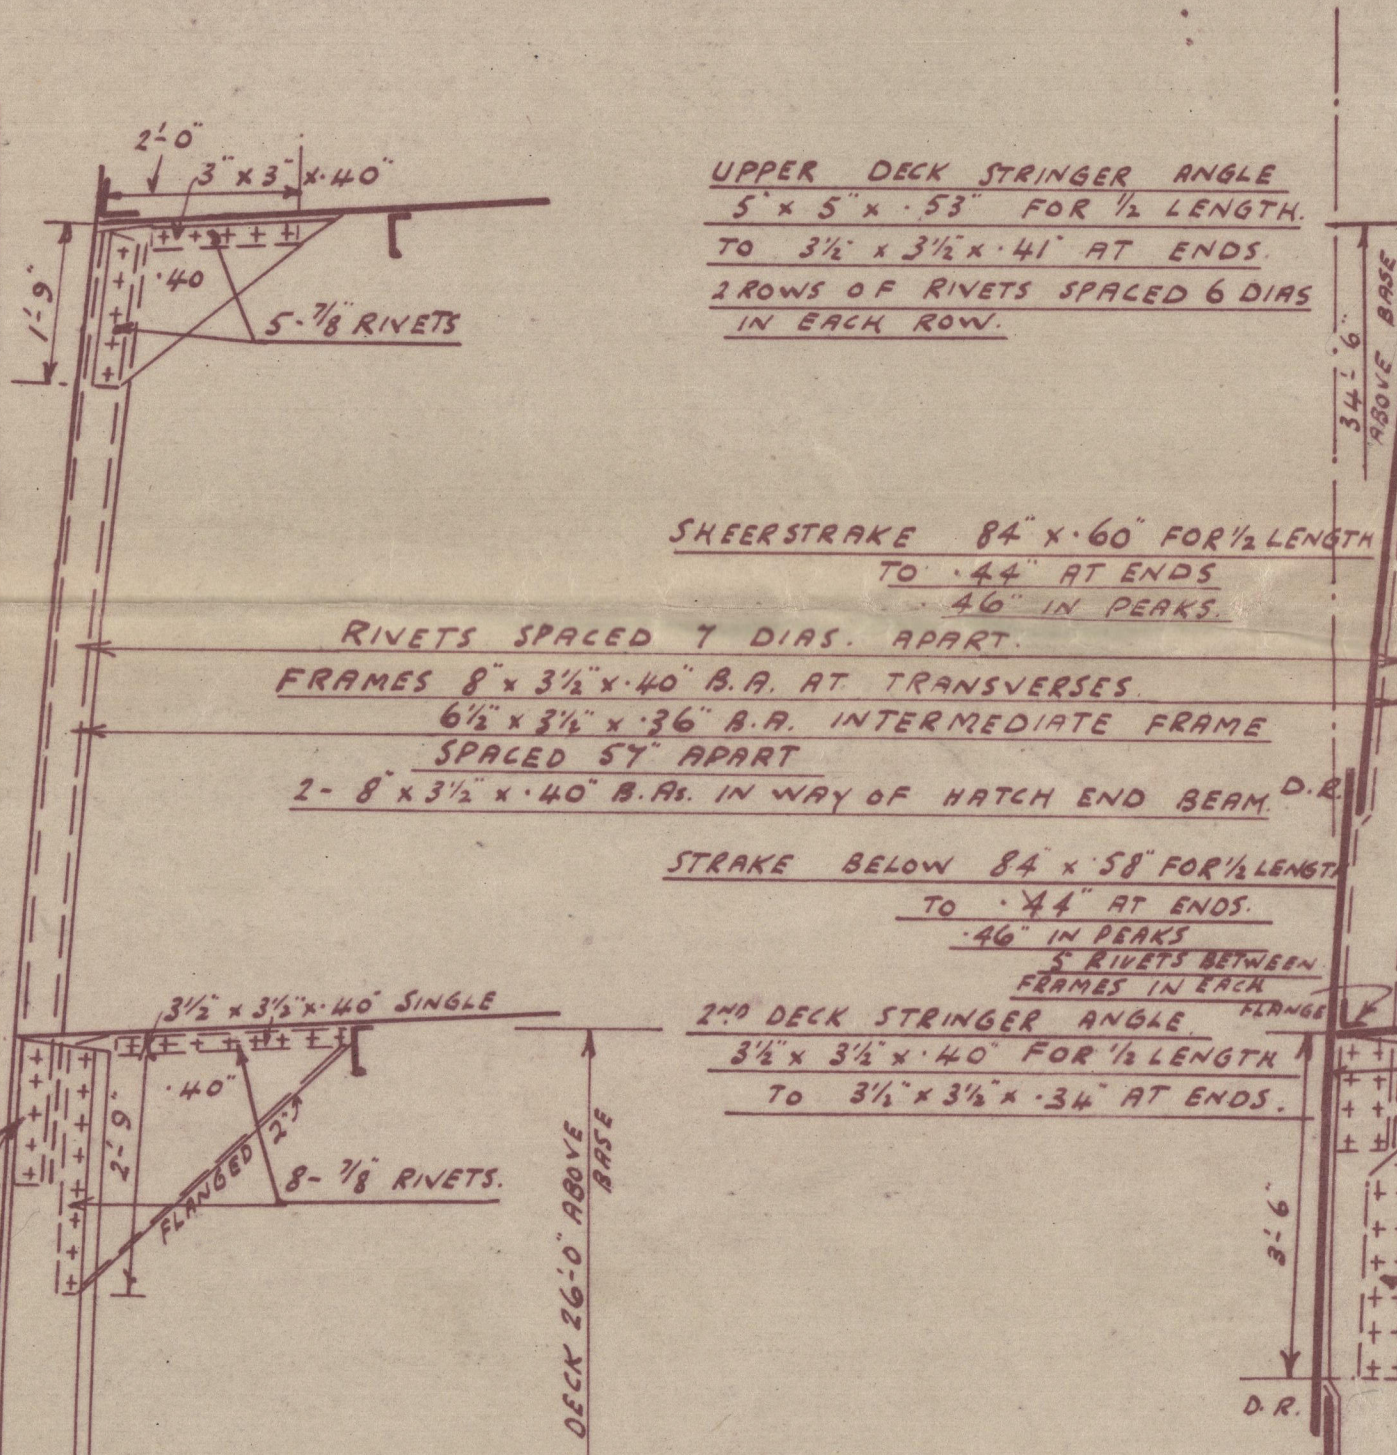 2'-0"
3" x 3" x .40"
1'-9"
.40
5-7/8" RIVETS
UPPER DECK STRINGER ANGLE
5" x 5" x .53" FOR 1/2 LENGTH.
TO 3½" x 3½" x .41" AT ENDS.
2 ROWS OF RIVETS SPACED 6 DIAS
IN EACH ROW.
34'-6"
ABOVE BASE
SHEERSTRAKE 84" x .60" FOR 1/2 LENGTH
TO .44" AT ENDS
.46" IN PEAKS.
RIVETS SPACED 7 DIAS. APART.
FRAMES 8" x 3½" x .40" B.A. AT TRANSVERSES.
6½" x 3½" x .36" B.A. INTERMEDIATE FRAME
SPACED 57" APART
2- 8" x 3½" x .40" B.As. IN WAY OF HATCH END BEAM.
D.R.
STRAKE BELOW 84" x .58" FOR 1/2 LENGTH
TO .44" AT ENDS.
.46" IN PEAKS
5 RIVETS BETWEEN
FRAMES IN EACH
FLANGE
2ND DECK STRINGER ANGLE.
3½" x 3½" x .40" FOR 1/2 LENGTH
TO 3½" x 3½" x .34" AT ENDS.
3½" x 3½" x .40" SINGLE
.40"
2'-9"
FLANGED
8- 7/8" RIVETS.
DECK 26'-0" ABOVE
BASE
3'-6"
D.R.